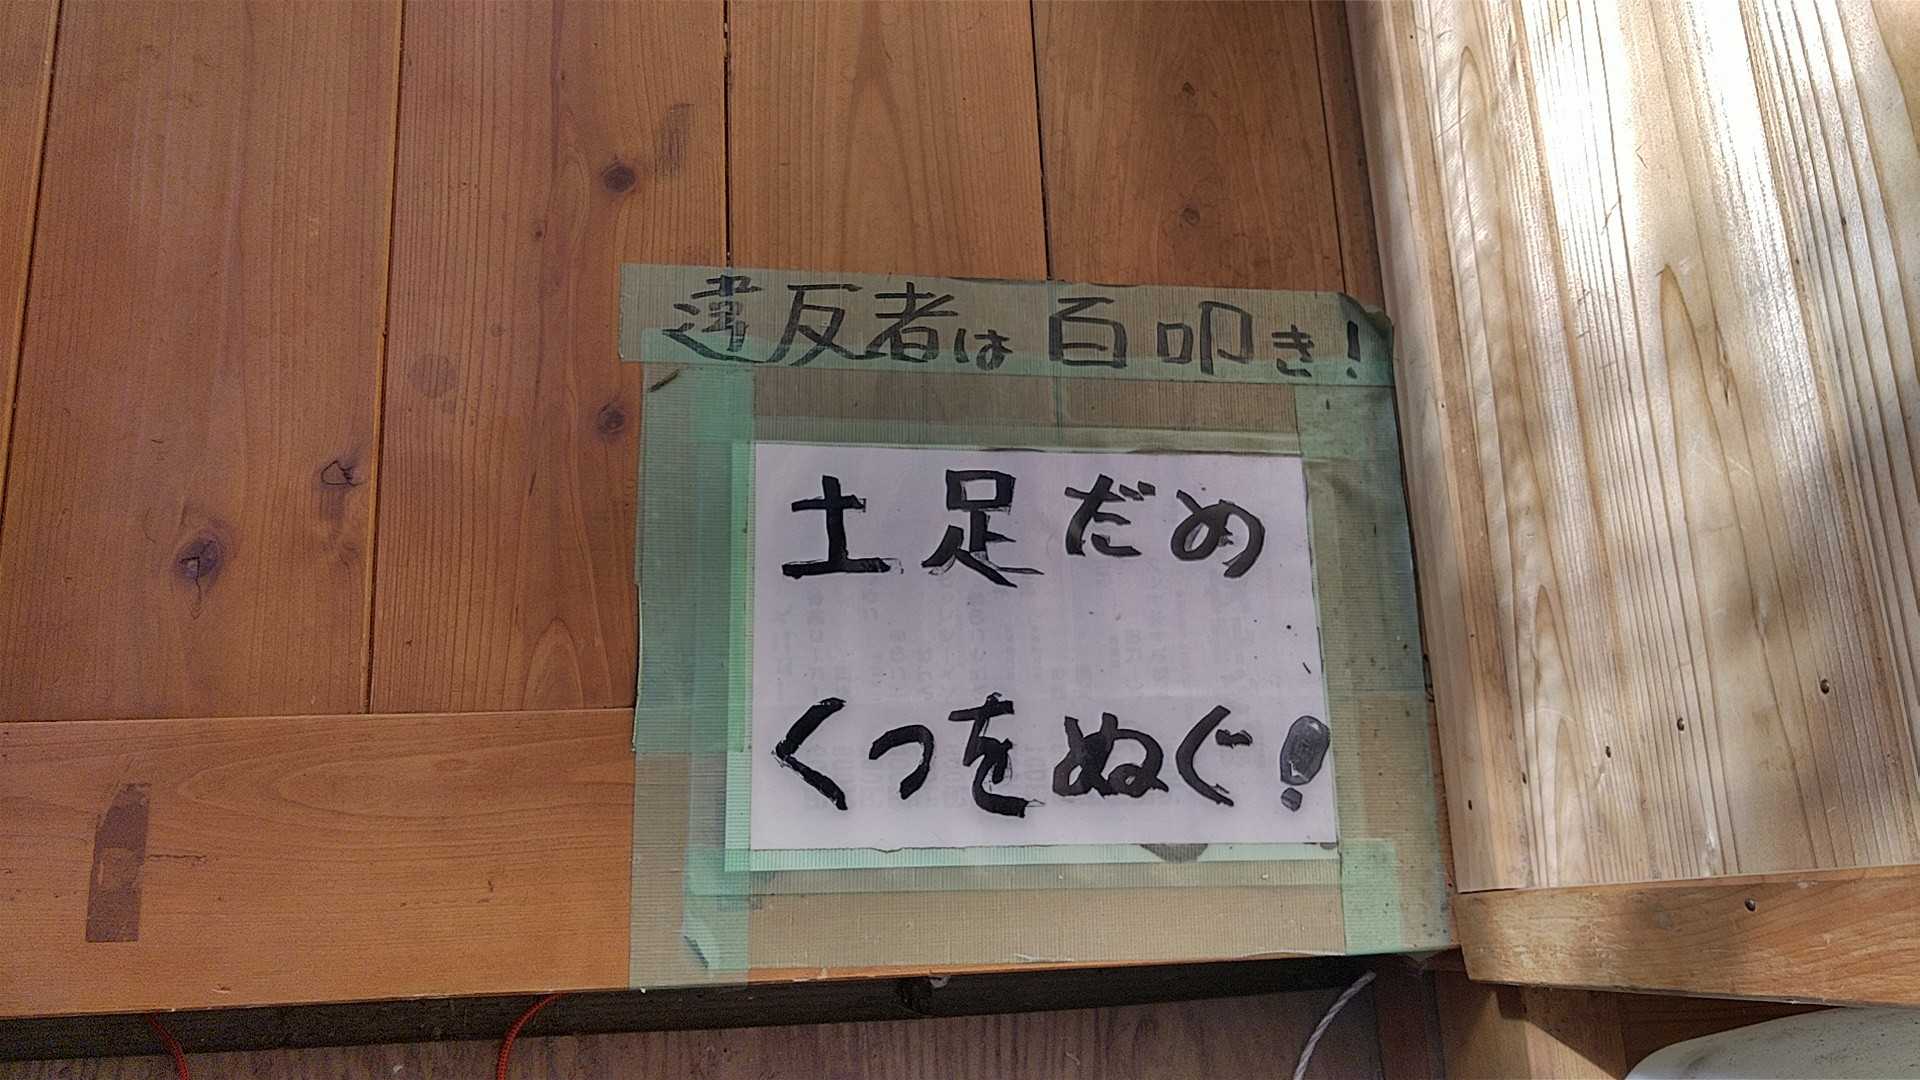 違反者は百叩き!
土足だめ
くつをぬぐ!